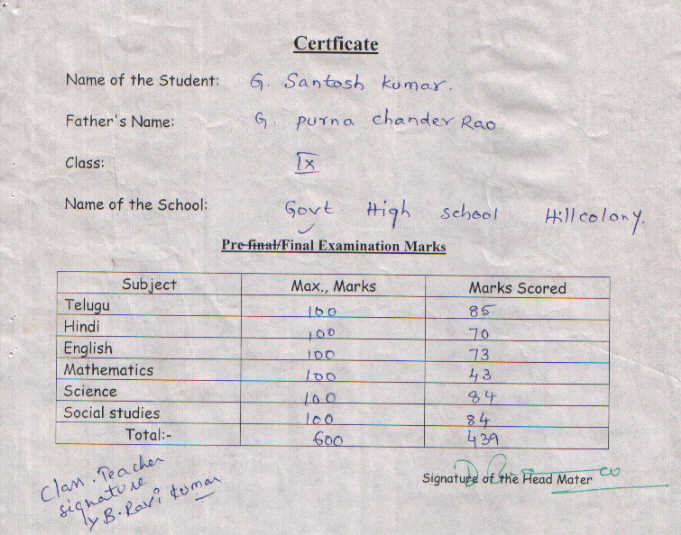 Certficate
Name of the Student: G. Santosh Kumar.
Father's Name: G. purna chander Rao
Class: IX
Name of the School: Govt High school Hillcolony.
Pre-final/Final Examination Marks
Subject Max., Marks Marks Scored
Telugu 100 85
Hindi 100 70
English 100 73
Mathematics 100 43
Science 100 84
Social studies 100 84
Total:- 600 439
Class. Teacher
signature
B. Ravi kumar
Signature of the Head Mater